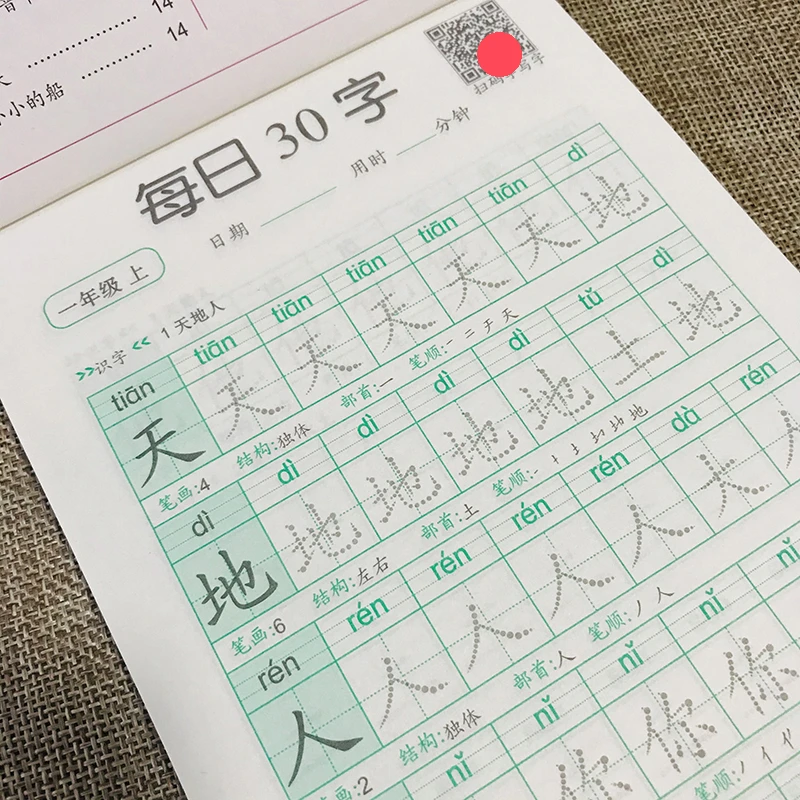 14
14
小小的船
每日30字
日期 用时 分钟
一年级 上
>>识字<< 1 天地人
tiān tiān tiān tiān tiān tiān dì
天 天 天 天 天 天 地
笔画:4 结构:独体 部首:一 笔顺:一 二 于 天
dì dì dì dì dì tǔ dì
地 地 地 地 地 土 地
笔画:6 结构:左右 部首:土 笔顺:
rén rén rén rén rén dà rén
人 人 人 人 人 大
笔画:2 结构:独体 部首:人 笔顺:丿 人
nǐ nǐ nǐ nǐ
你 你 你
笔顺: